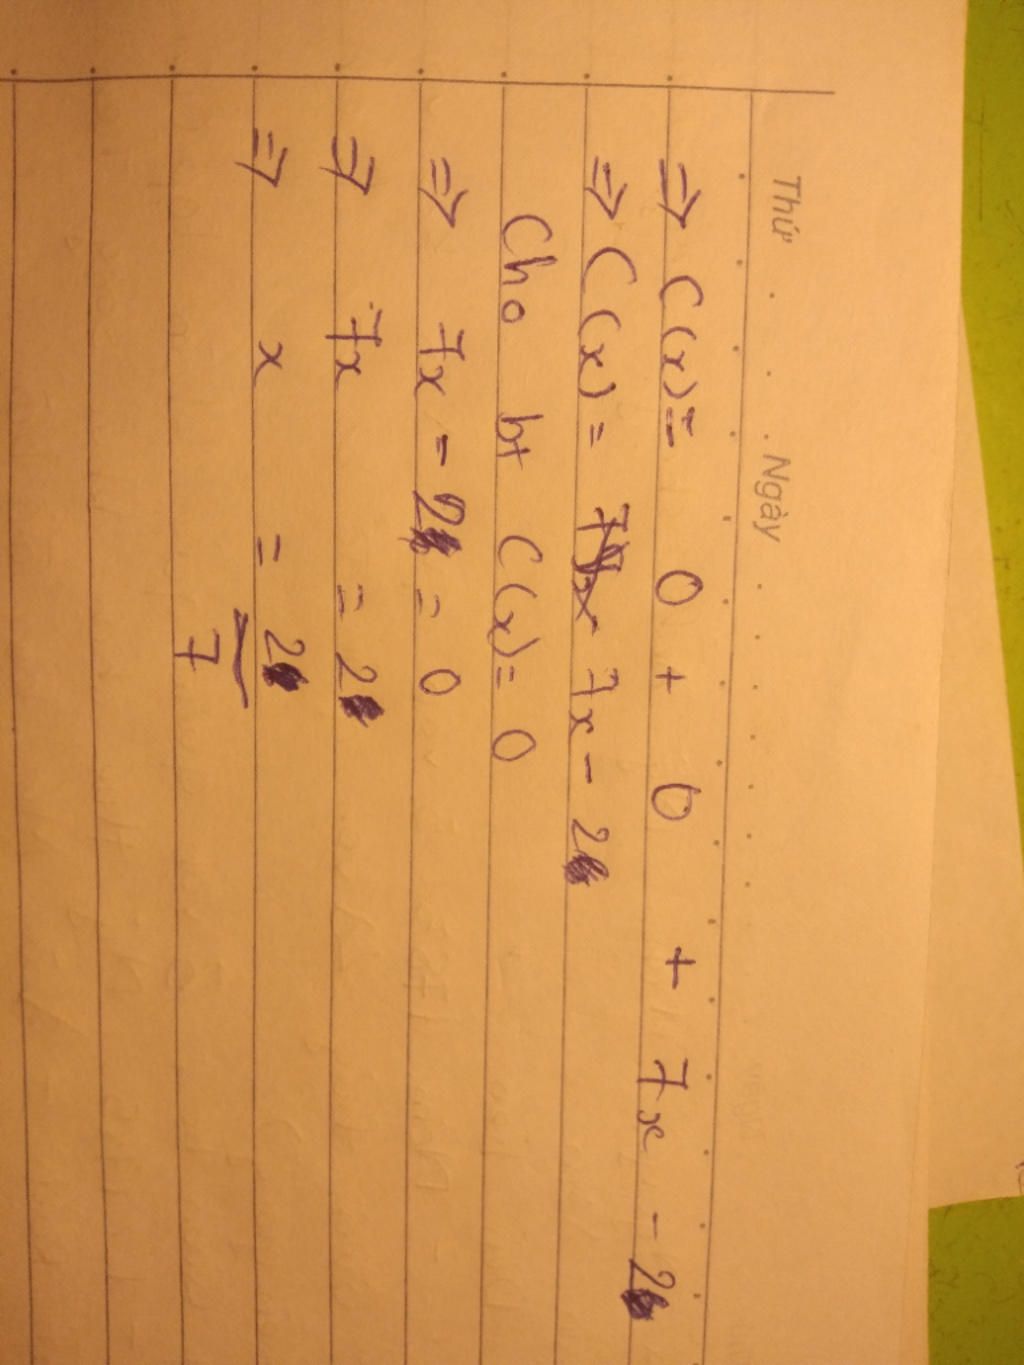 Thứ Ngày
=> C(x) = 0 + 0 + 7x - 2
=> C(x) = 7x - 2
Cho bt C(x) = 0
=> 7x - 2 = 0
=> 7x = 2
=> x = 2
7